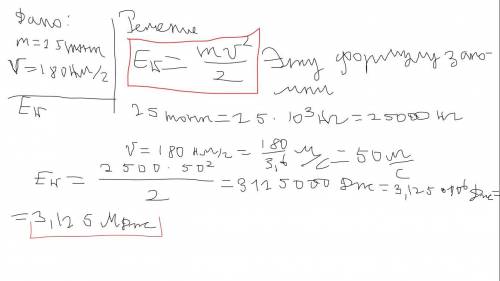 Дано:
m=25тонн
V=180км/г
Eк
Решение
Eк = mv²/2 Эту формулу запо-
мни
25 тонн = 25 · 10³ кг = 25000 кг
V = 180 км/г = 180/3,6 м/с = 50 м/с
Eк = 2500 · 50²/2 = 3125000 Дж = 3,125·10⁶ Дж =
= 3,125 МДж